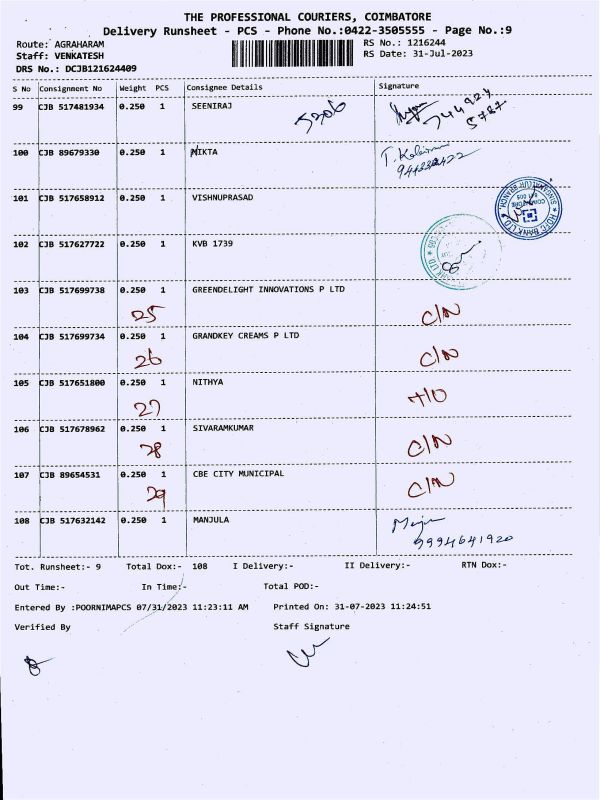 THE PROFESSIONAL COURIERS, COIMBATORE
Delivery Runsheet - PCS - Phone No.:0422-3505555 - Page No.:9
Route: AGRAHARAM RS No.: 1216244
Staff: VENKATESH RS Date: 31-Jul-2023
DRS No.: DCJB121624409
S No Consignment No Weight PCS Consignee Details Signature
99 CJB 517481934 0.250 1 SEENIRAJ
5206
100 CJB 89679330 0.250 1 NIKTA
101 CJB 517658912 0.250 1 VISHNUPRASAD
HDFC BANK LTD.
102 CJB 517627722 0.250 1 KVB 1739
103 CJB 517699738 0.250 1 GREENDELIGHT INNOVATIONS P LTD
25 C/N
104 CJB 517699734 0.250 1 GRANDKEY CREAMS P LTD
26 C/N
105 CJB 517651800 0.250 1 NITHYA
27
106 CJB 517678962 0.250 1 SIVARAMKUMAR
28 C/N
107 CJB 89654531 0.250 1 CBE CITY MUNICIPAL
29 C/N
108 CJB 517632142 0.250 1 MANJULA
9994641920
Tot. Runsheet:- 9 Total Dox:- 108 I Delivery:- II Delivery:- RTN Dox:-
Out Time:- In Time:- Total POD:-
Entered By :POORNIMAPCS 07/31/2023 11:23:11 AM Printed On: 31-07-2023 11:24:51
Verified By Staff Signature